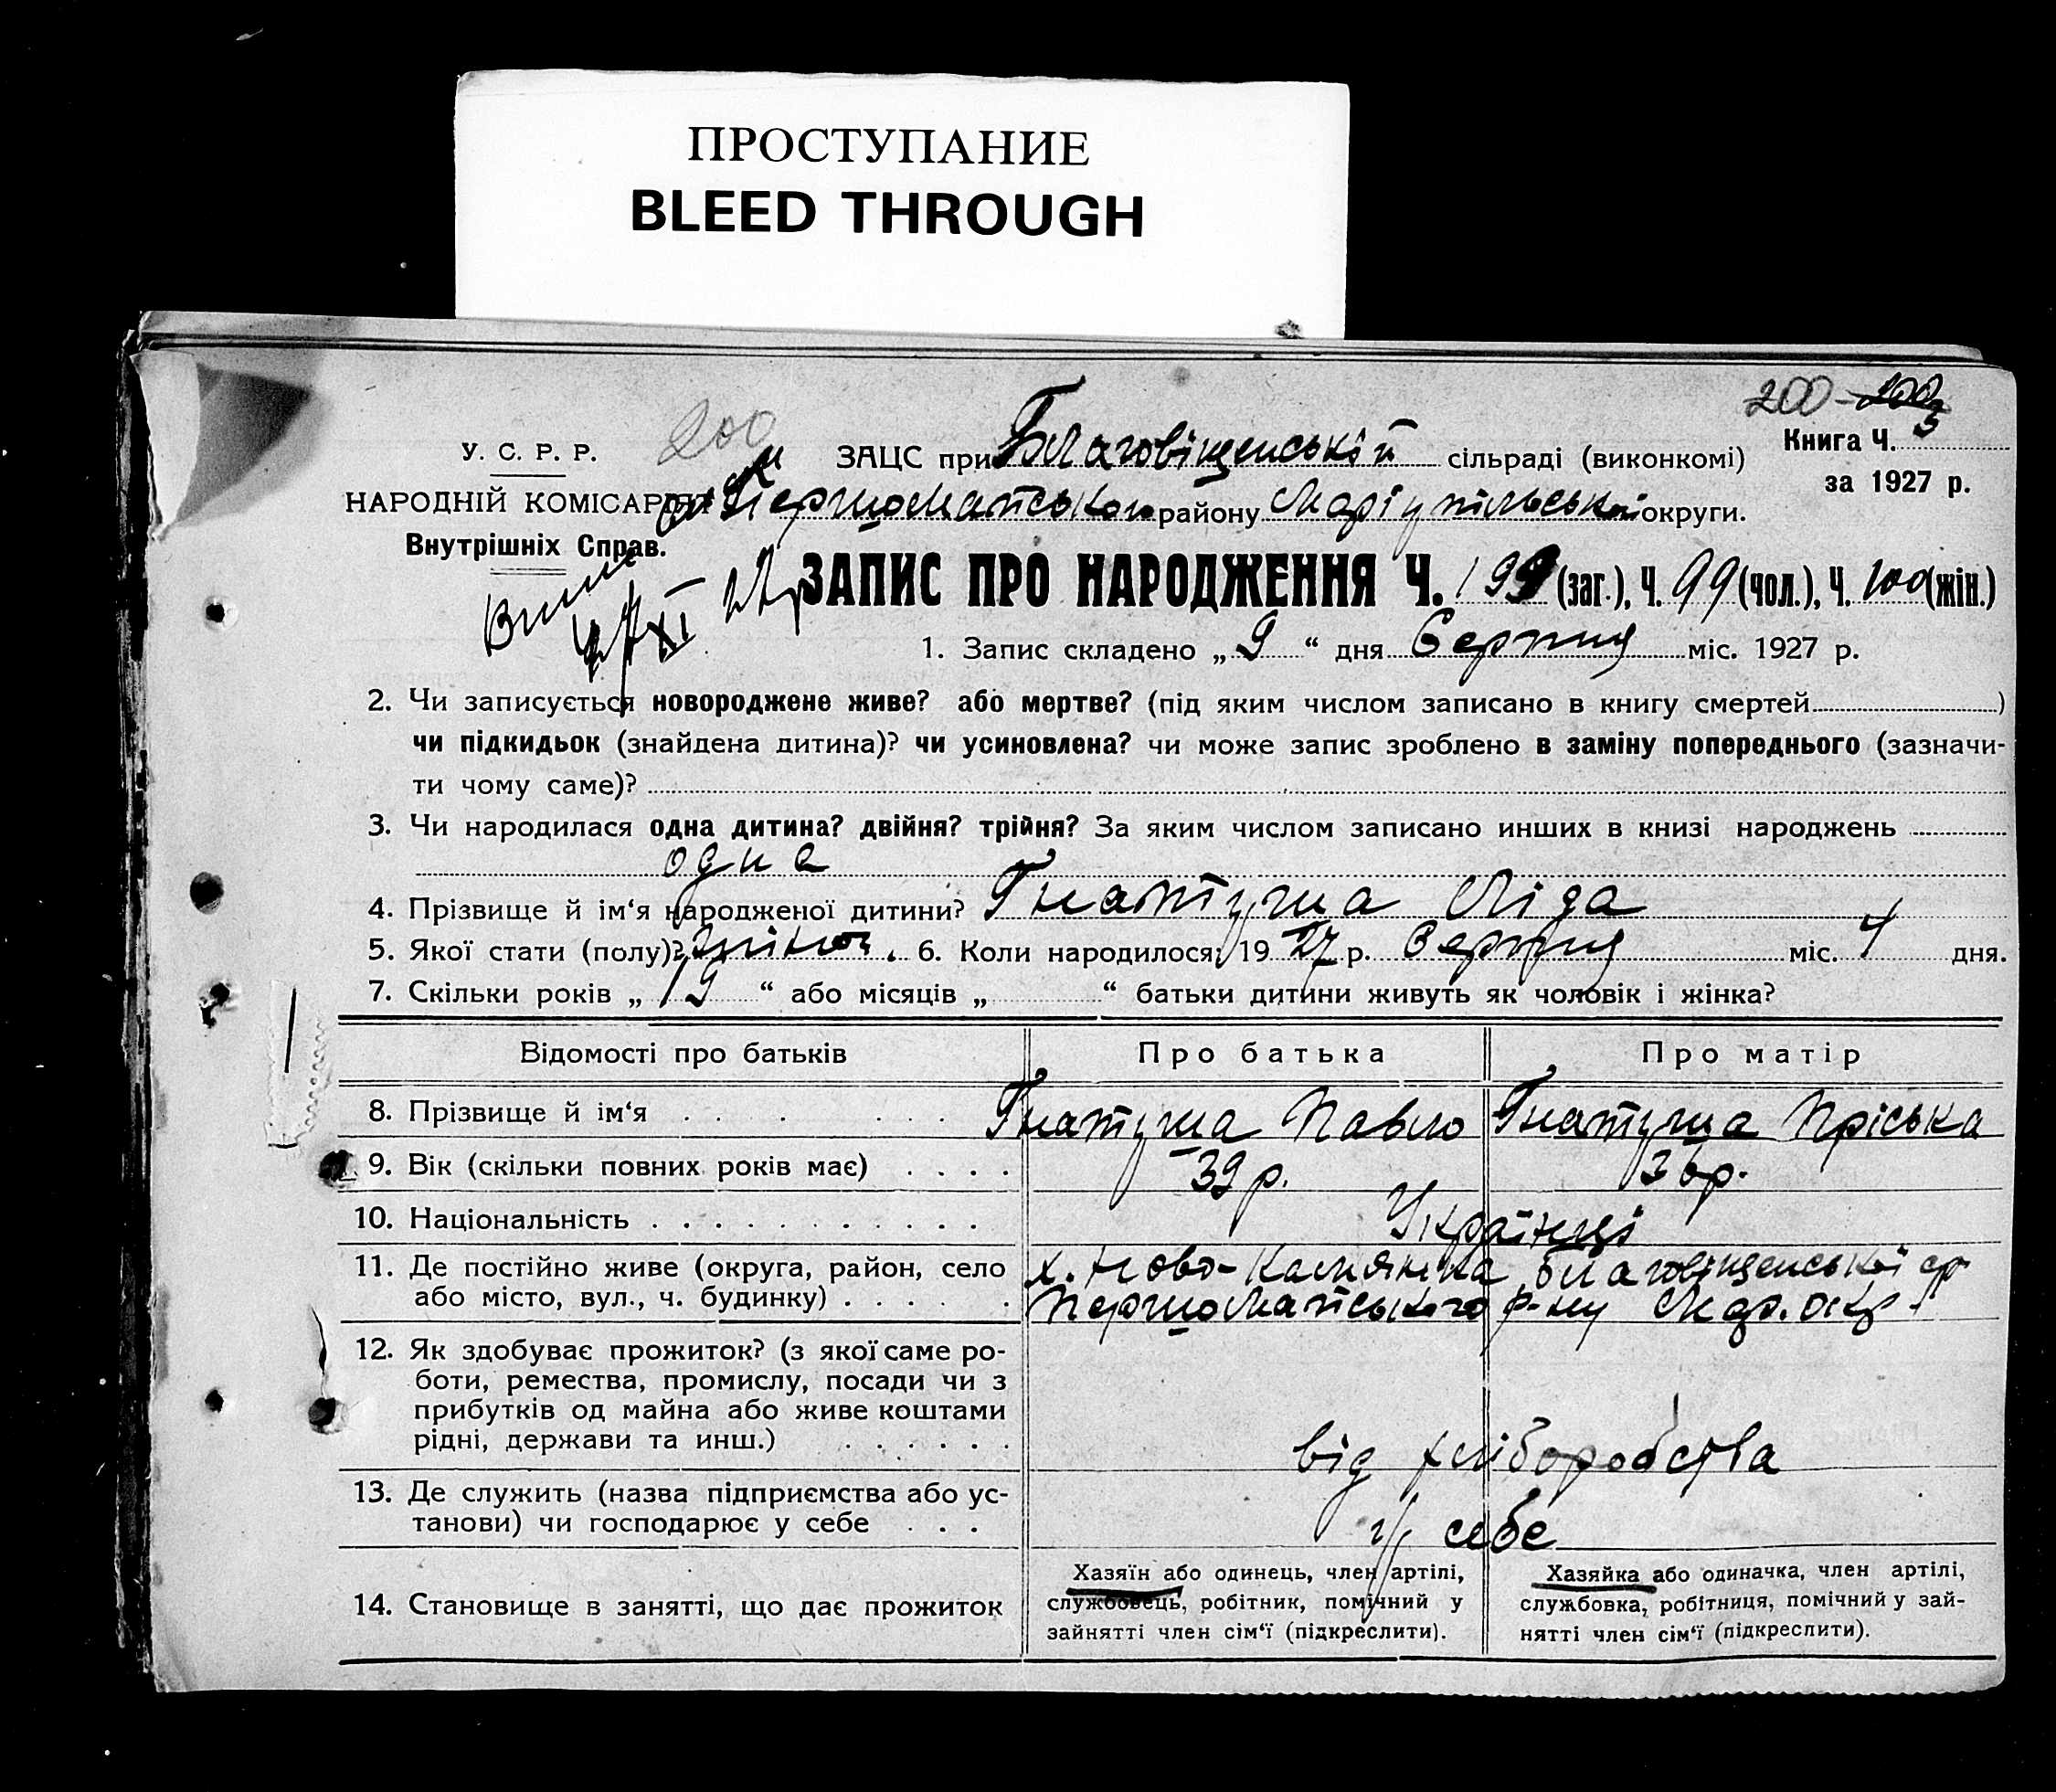 ПРОСТУПАНИЕ
BLEED THROUGH
200 - 200
Книга Ч. 3
за 1927 р.
200
У. С. Р. Р.
НАРОДНІЙ КОМІСАРІЯТ
Внутрішніх Справ.
ЗАЦС при Благовіщенській сільраді (виконкомі)
Першомайського району Маріупільської округи.
ЗАПИС ПРО НАРОДЖЕННЯ Ч. 199 (заг.), Ч. 99 (чол.), Ч. 100 (жін.)
1. Запис складено „ 9 “ дня Серпня міс. 1927 р.
2. Чи записується новороджене живе? або мертве? (під яким числом записано в книгу смертей )
чи підкидьок (знайдена дитина)? чи усиновлена? чи може запис зроблено в заміну попереднього (зазначи-
ти чому саме)?
3. Чи народилася одна дитина? двійня? трійня? За яким числом записано инших в книзі народжень
одна
4. Прізвище й ім‘я народженої дитини? Гнатуша Ліда
5. Якої стати (полу)? жіноч. 6. Коли народилося: 1927 р. Серпня міс. 4 дня.
7. Скільки років „ 19 “ або місяців „ “ батьки дитини живуть як чоловік і жінка?
Відомості про батьків Про батька Про матір
8. Прізвище й ім‘я Гнатуша Павло Гнатуша Пріська
9. Вік (скільки повних років має) 39 р. 36 р.
10. Національність Українці
11. Де постійно живе (округа, район, село х. Ново-Каменка Благовіщенської ср
або місто, вул., ч. будинку) Першомайського р-ну Мар. окр.
12. Як здобуває прожиток? (з якої саме ро-
боти, ремества, промислу, посади чи з
прибутків од майна або живе коштами
рідні, держави та инш.) від хліборобства
13. Де служить (назва підприємства або ус-
танови) чи господарює у себе у себе
14. Становище в занятті, що дає прожиток
Хазяїн або одинець, член артілі,
службовець, робітник, помічний у
зайнятті член сім‘ї (підкреслити).
Хазяйка або одиначка, член артілі,
службовка, робітниця, помічний у зай-
нятті член сім‘ї (підкреслити).